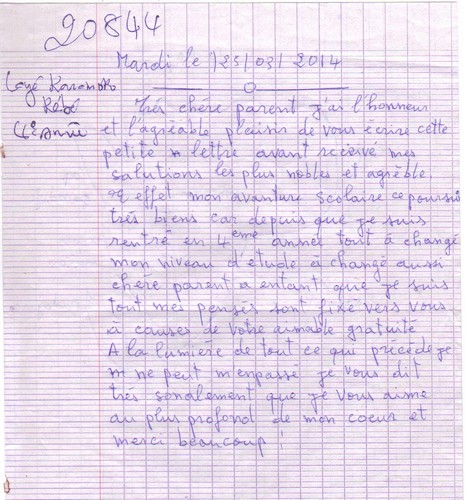 20844
Mardi le 25/03/2014
Layé Karamoko
Kébé
4e Année
Très chère parent j'ai l'honneur
et l'agréable plaisir de vous écrire cette
petite lettre avant recevé mes
salutions les plus nobles et agréble
effet mon avanture scolaire ce poursui
très biens car depuis que je suis
rentré en 4ème année tout à changé
mon niveau d'etude à changé aussi
chère parent a entant que je suis
tout mes pensés sont fixé vers vous
à causes de votre aimable gratuité
A la lumière de tout ce qui précède je
m ne peut m'empassé je vous dit
très sonalement que je vous aime
au plus profond de mon coeur et
merci beaucoup !